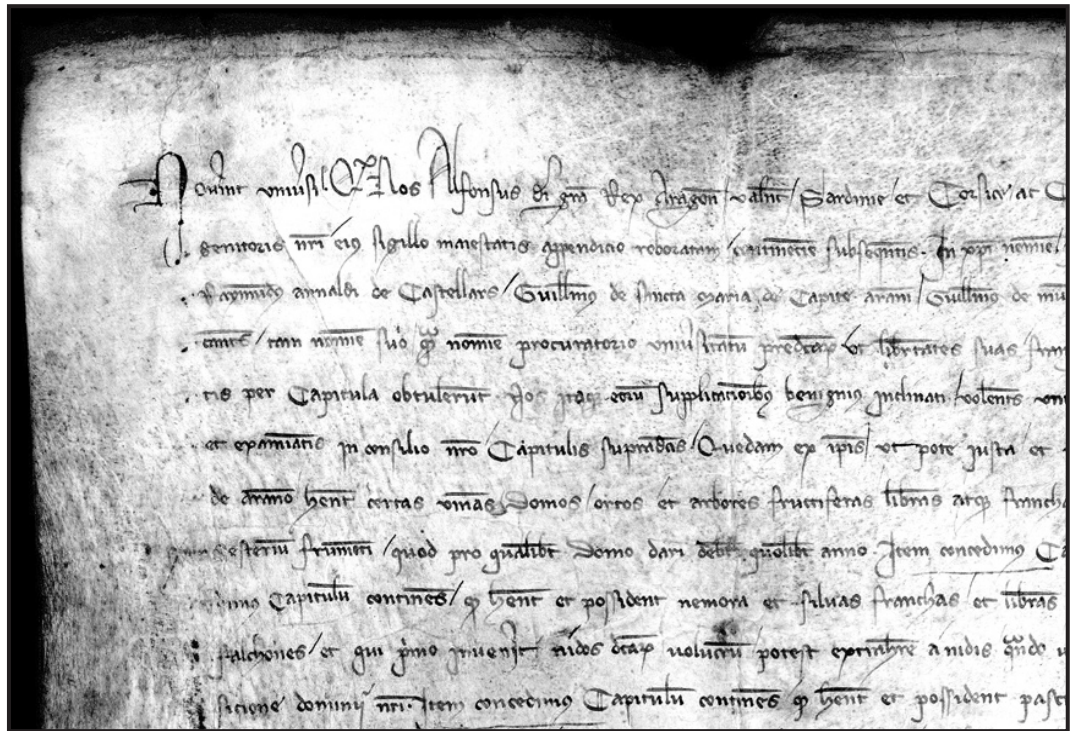 Nov̄int univ̄si Q Nos Alfonsus dī grā Rex Aragon̄ / valn̄t / Sardinie et Corsice / ac
genitoris nr̄i eius sigillo maiestatis appendicio roboratam / continētie subseqn̄tis. In xp̄i nōmie /
Raymūdo arnaldi de Castellars / Guillm̄o de sancta maria de Capite arani / Guillm̄o de
tam nōmie suo qm̄ nōmie procuratorio univ̄sitatū predcār̄ et lib̄rtates suas
tis per Capitula obtulerūt Nos itaq̄ eor̄ supplicatioībȝ benignius inclinati / volent̄s
et examīatis in consilio nr̄o / Capitulis supradc̄is / Quedam ex ip̄is / ut pote justa et
de arano hēnt certas vineas domos / ortos et arbores fructiferas lib̄ras atq̄
esteriū frumēti / quod pro qualib̄t domo dari deb̄t quolib̄t anno. Item concedimus
Capitulū continēs / q̄ hēnt et possident nemora et silvas franchas / et lib̄ras
falchones / et qui p̄mo invenit nidos dc̄ar̄ volucrū / potest extrah̄re a nidis qn̄do
sicione domini nr̄i. Item concedimus Capitulū continēs q̄ hēnt et possident